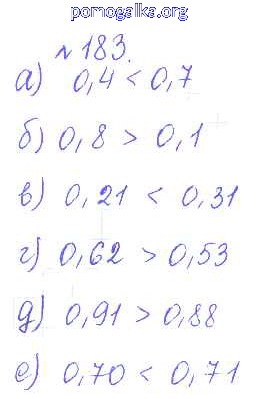 pomogalka.org
№183.
а) 0,4 < 0,7
б) 0,8 > 0,1
в) 0,21 < 0,31
г) 0,62 > 0,53
д) 0,91 > 0,88
е) 0,70 < 0,71